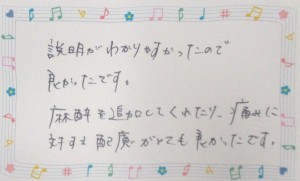 説明がわかりやすかったので
良かったです。
麻酔を追加してくれたり、痛みに
対する配慮がとても良かったです。